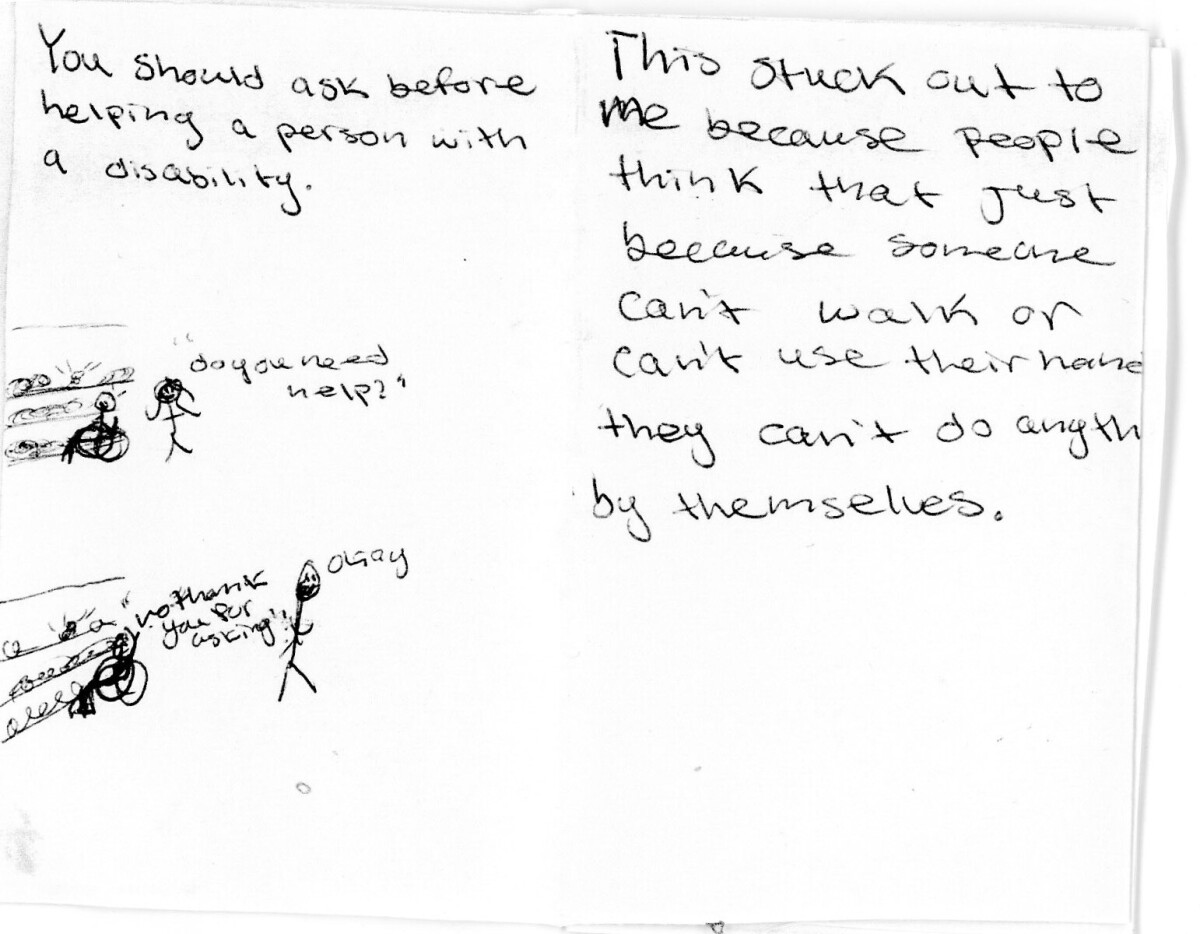 You should ask before
helping a person with
a disability.
"do you need
help?"
"no thank
you for
asking"
okay
This stuck out to
me because people
think that just
because someone
can't walk or
can't use their hand
they can't do anyth
by themselves.